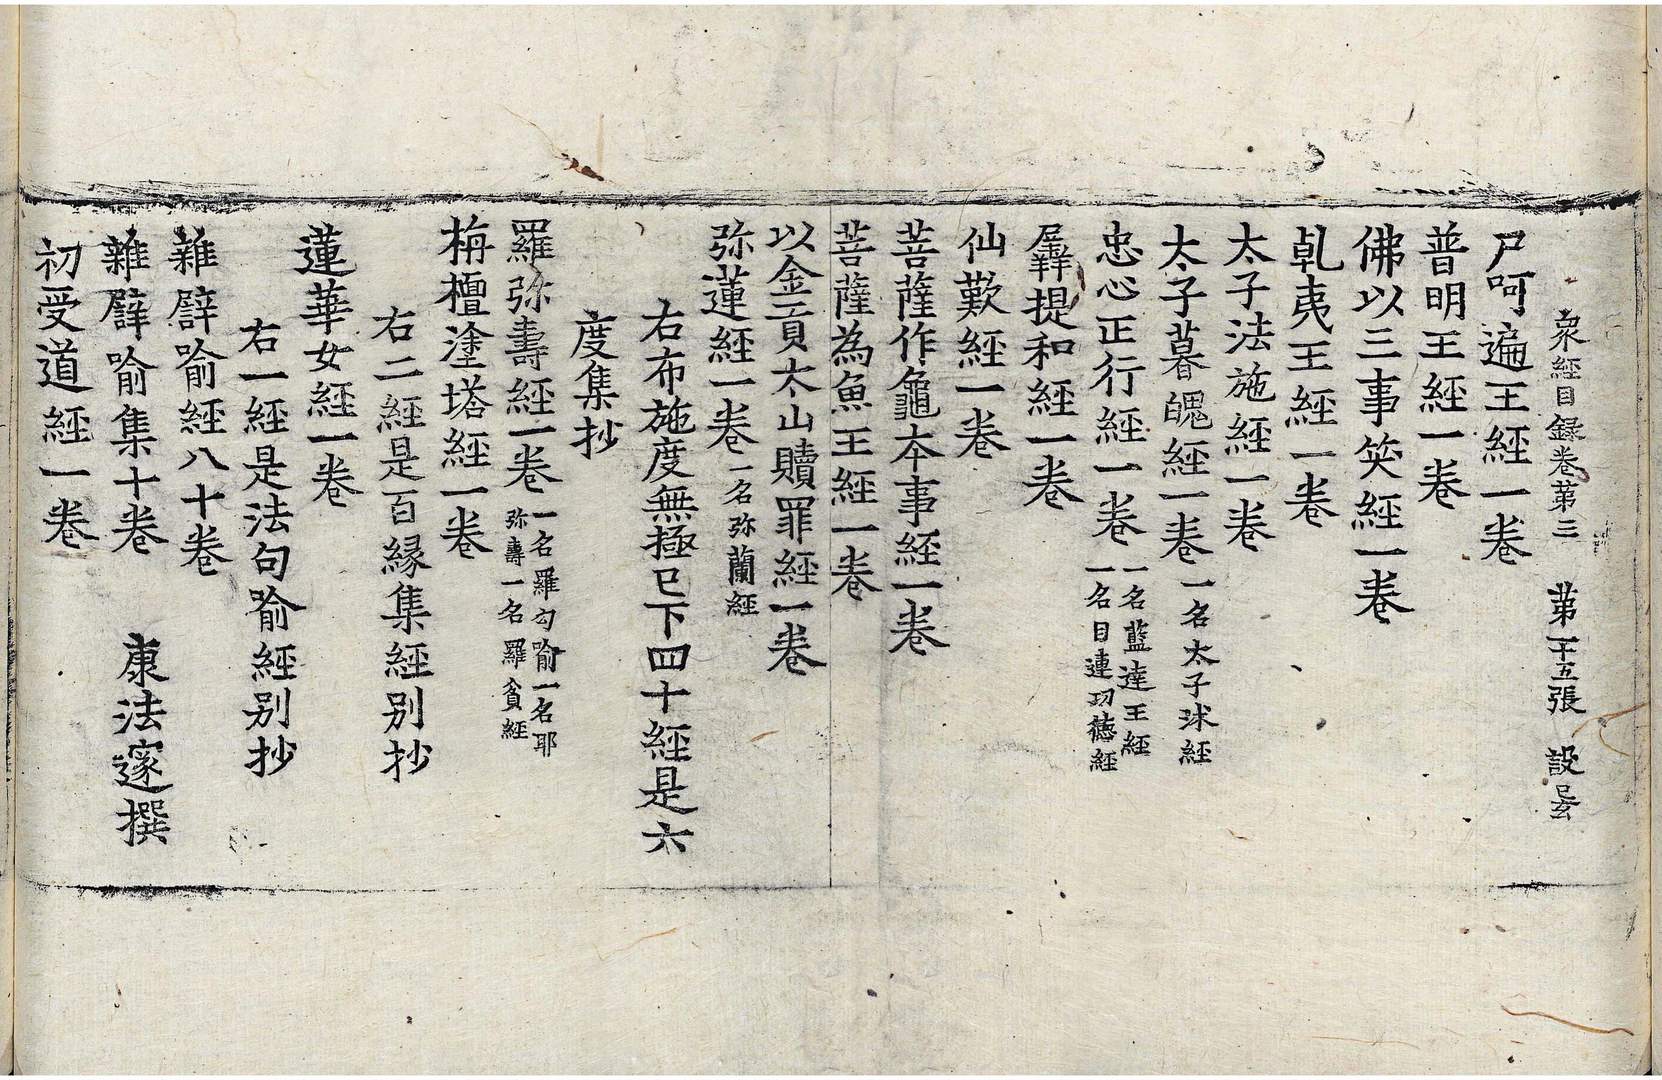 衆經目錄卷第三　第二十五張　設号
尸呵遍王經一卷
普明王經一卷
佛以三事笑經一卷
乹夷王經一卷
太子法施經一卷
太子暮魄經一卷 一名太子沐經
忠心正行經一卷 一名藍達王經
一名目連功德經
羼提和經一卷
仙歎經一卷
菩薩作龜本事經一卷
菩薩為魚王經一卷
以金貢太山贖罪經一卷
弥蓮經一卷 一名弥蘭經
右布施度無極已下四十經是六
度集抄
羅弥壽經一卷 一名羅勾喻一名耶
弥壽一名羅貧經
栴檀塗塔經一卷
右二經是百緣集經別抄
蓮華女經一卷
右一經是法句喻經別抄
雜譬喻經八十卷
雜譬喻集十卷　康法邃撰
初受道經一卷